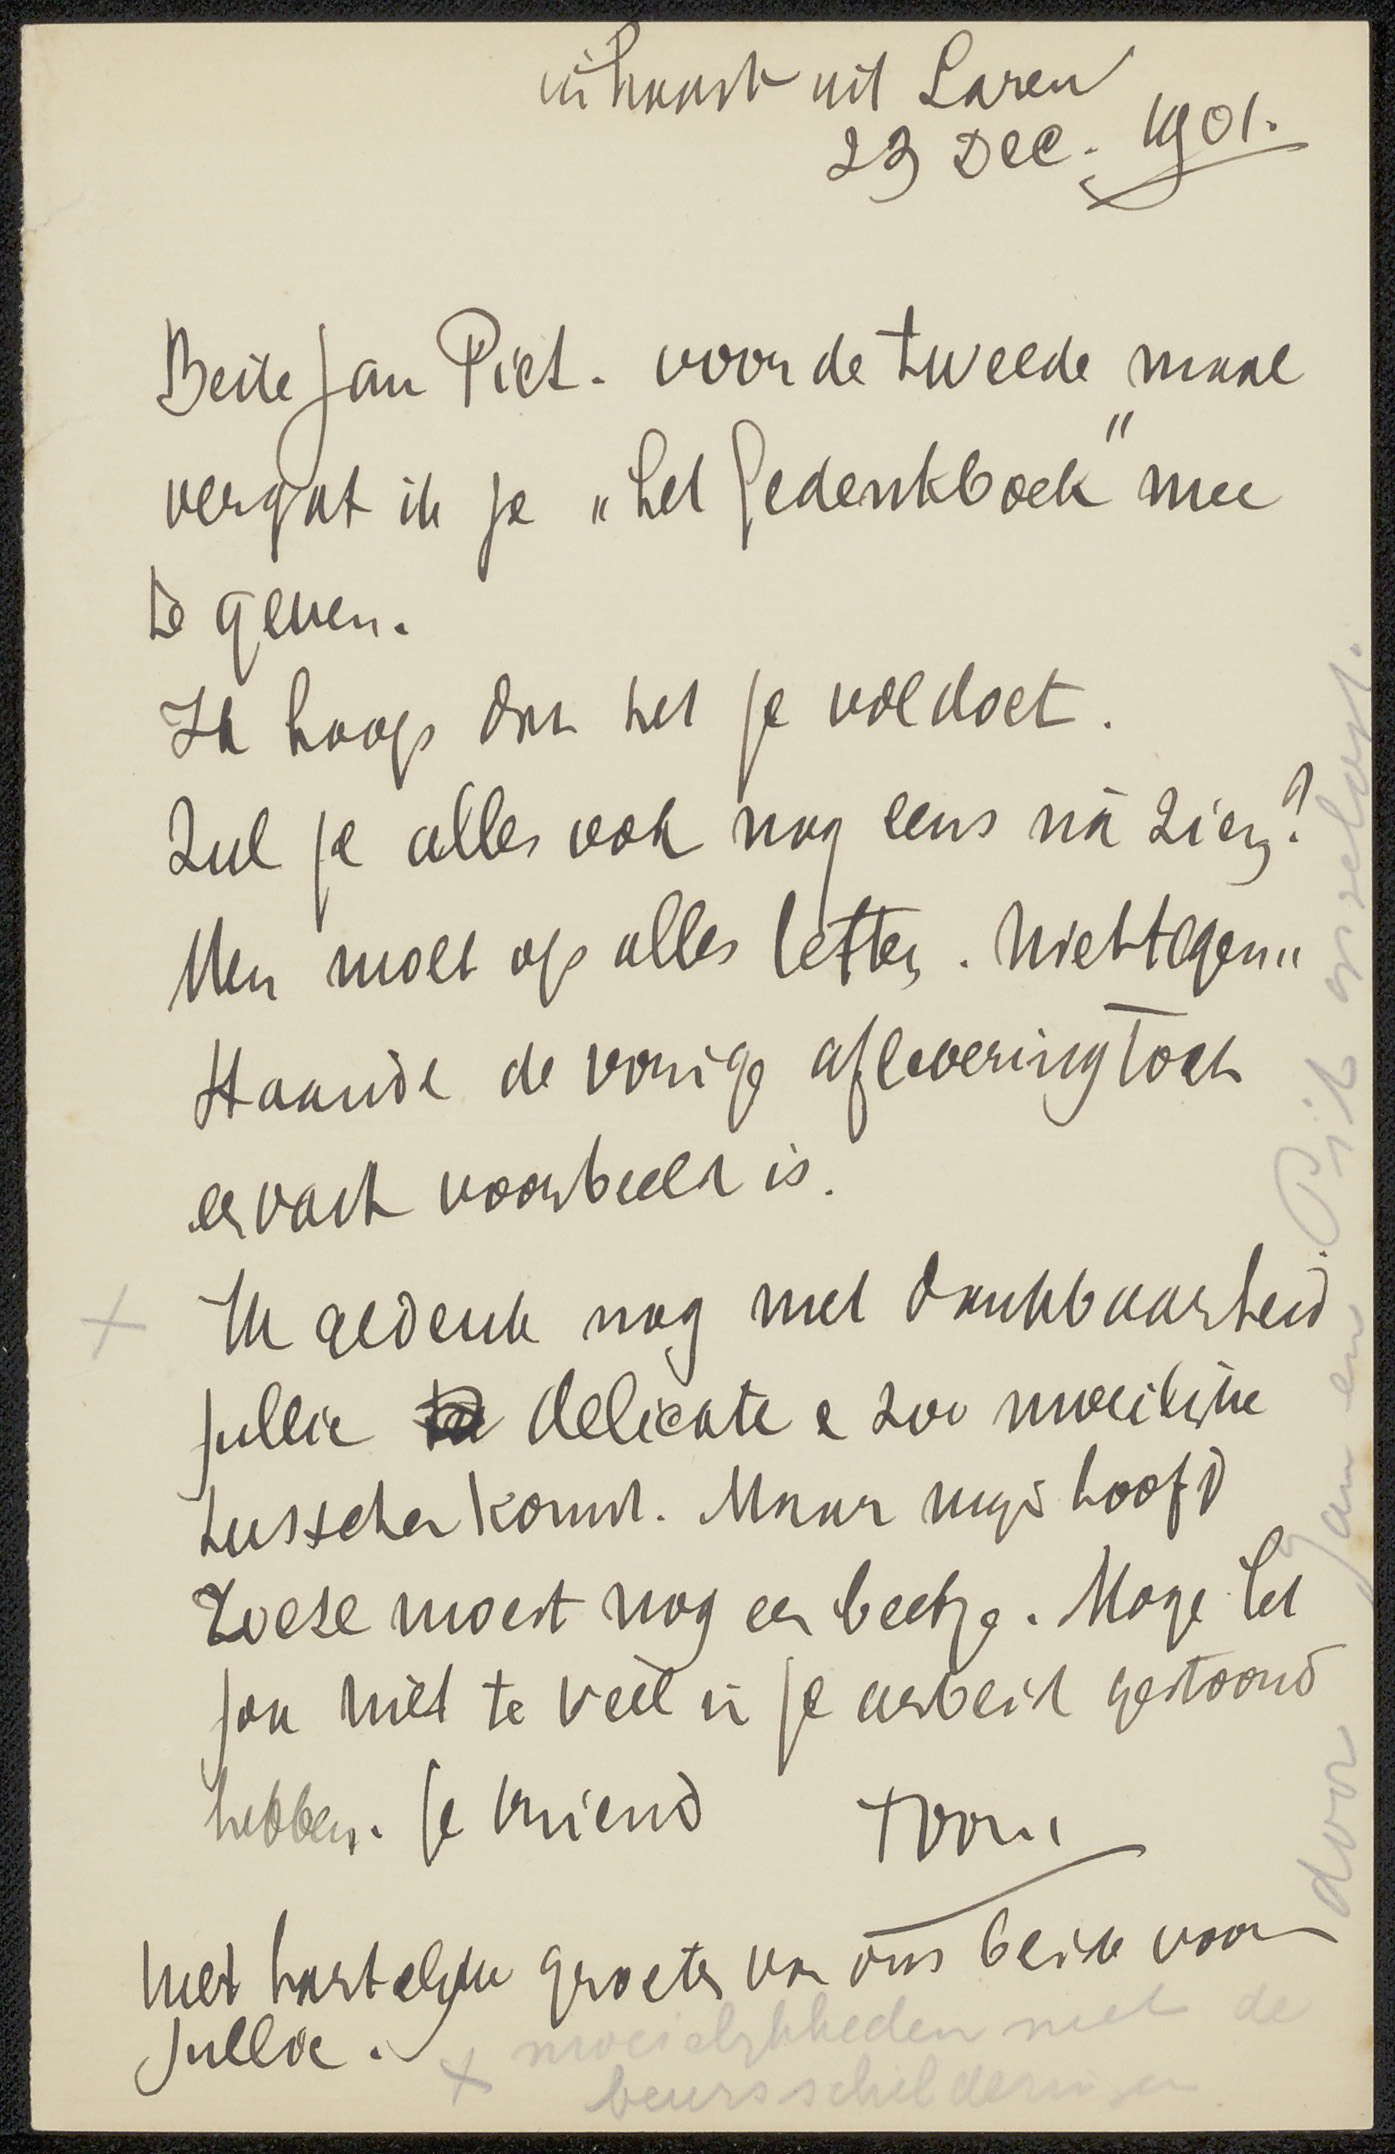 in haast uit Laren
23 Dec. 1901.
Beste Jan Piet. voor de tweede maal
vergat ik je „het Gedenkboek" mee
te geven.
Ik hoop dat het je voldoet.
Zul je alles ook nog eens nà zien?
Men moet op alles letten. Niettegen„
staande de vorige aflevering toch
een vast voorbeeld is.
x Ik gedenk nog met dankbaarheid
jullie delicate e zoo moeilijke
tusschenkomst. Maar mijn hoofd
zoese moest nog een beetje. Moge het
jou niet te veel in je arbeid gestoord
hebben. Je vriend Toon
Met hartelijke groeten van ons beide voor
jullie.
x moeielijkheden met de
beursschilderingen
door Jan en Piet opgelost.